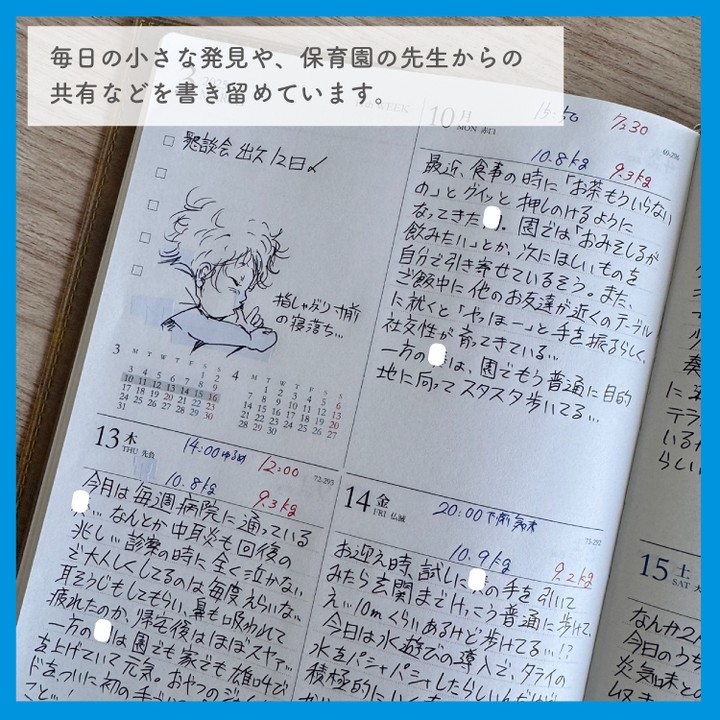 毎日の小さな発見や、保育園の先生からの
共有などを書き留めています。
懇談会 出欠 12日〆
指しゃぶり寸前
の寝落ち…
3 M T W T F S S
1 2
3 4 5 6 7 8 9
10 11 12 13 14 15 16
17 18 19 20 21 22 23
24 25 26 27 28 29 30
31
4 M T W T F S S
1 2 3 4 5 6
7 8 9 10 11 12 13
14 15 16 17 18 19 20
21 22 23 24 25 26 27
28 29 30
10 月
MON 赤口
7:30
69-296
10.8kg 9.3kg
最近、食事の時に「お茶もういらない
の」とグイッと押しのけるように
なってきた 。園では「おみそしるが
飲みたい」とか、次にほしいものを
自分で引き寄せているそう。また、
ご飯中に他のお友達が近くのテーブル
に就くと「やっほー」と手を振るらしく、
社交性が育ってきている…
一方の は、園でもう普通に目的
地に向ってスタスタ歩いてる…
13 木
THU 先負
14:00ゆるめ 12:00
72-293
10.8kg 9.3kg
今月は毎週病院に通っている
…なんとか中耳炎も回復の
兆し…診察の時に全く泣かない
で大人しくしてるのは毎度えらいな。
耳そうじもしてもらい、鼻も吸われて
疲れたのか、帰宅後はほぼスヤァ…
一方の は園でも家でも雄叫び
を上げていて元気。おやつの
ドをついに初の手づ
こと…!
14 金
FRI 仏滅
20:00
73-292
10.9kg 9.2kg
お迎え時、試しに の手を引いて
みたら玄関までけっこう普通に歩けて、
え…10mくらいあるけど歩けてる…!?
今日は水遊びの導入で、タライの
水をパシャパシャしたらしいんだけど
積極的に
15 土
SAT
なんか2人
今日のうち
炎気味との